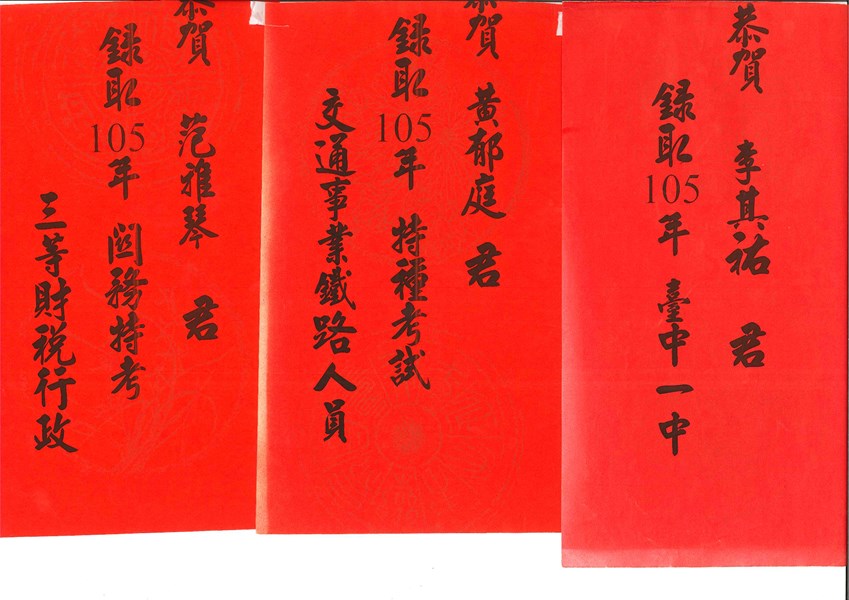 恭賀 李其祐 君
錄取105年 臺中一中
恭賀 黃郁庭 君
錄取105年 特種考試
交通事業鐵路人員
恭賀 范雅琴 君
錄取105年 關務特考
三等財稅行政